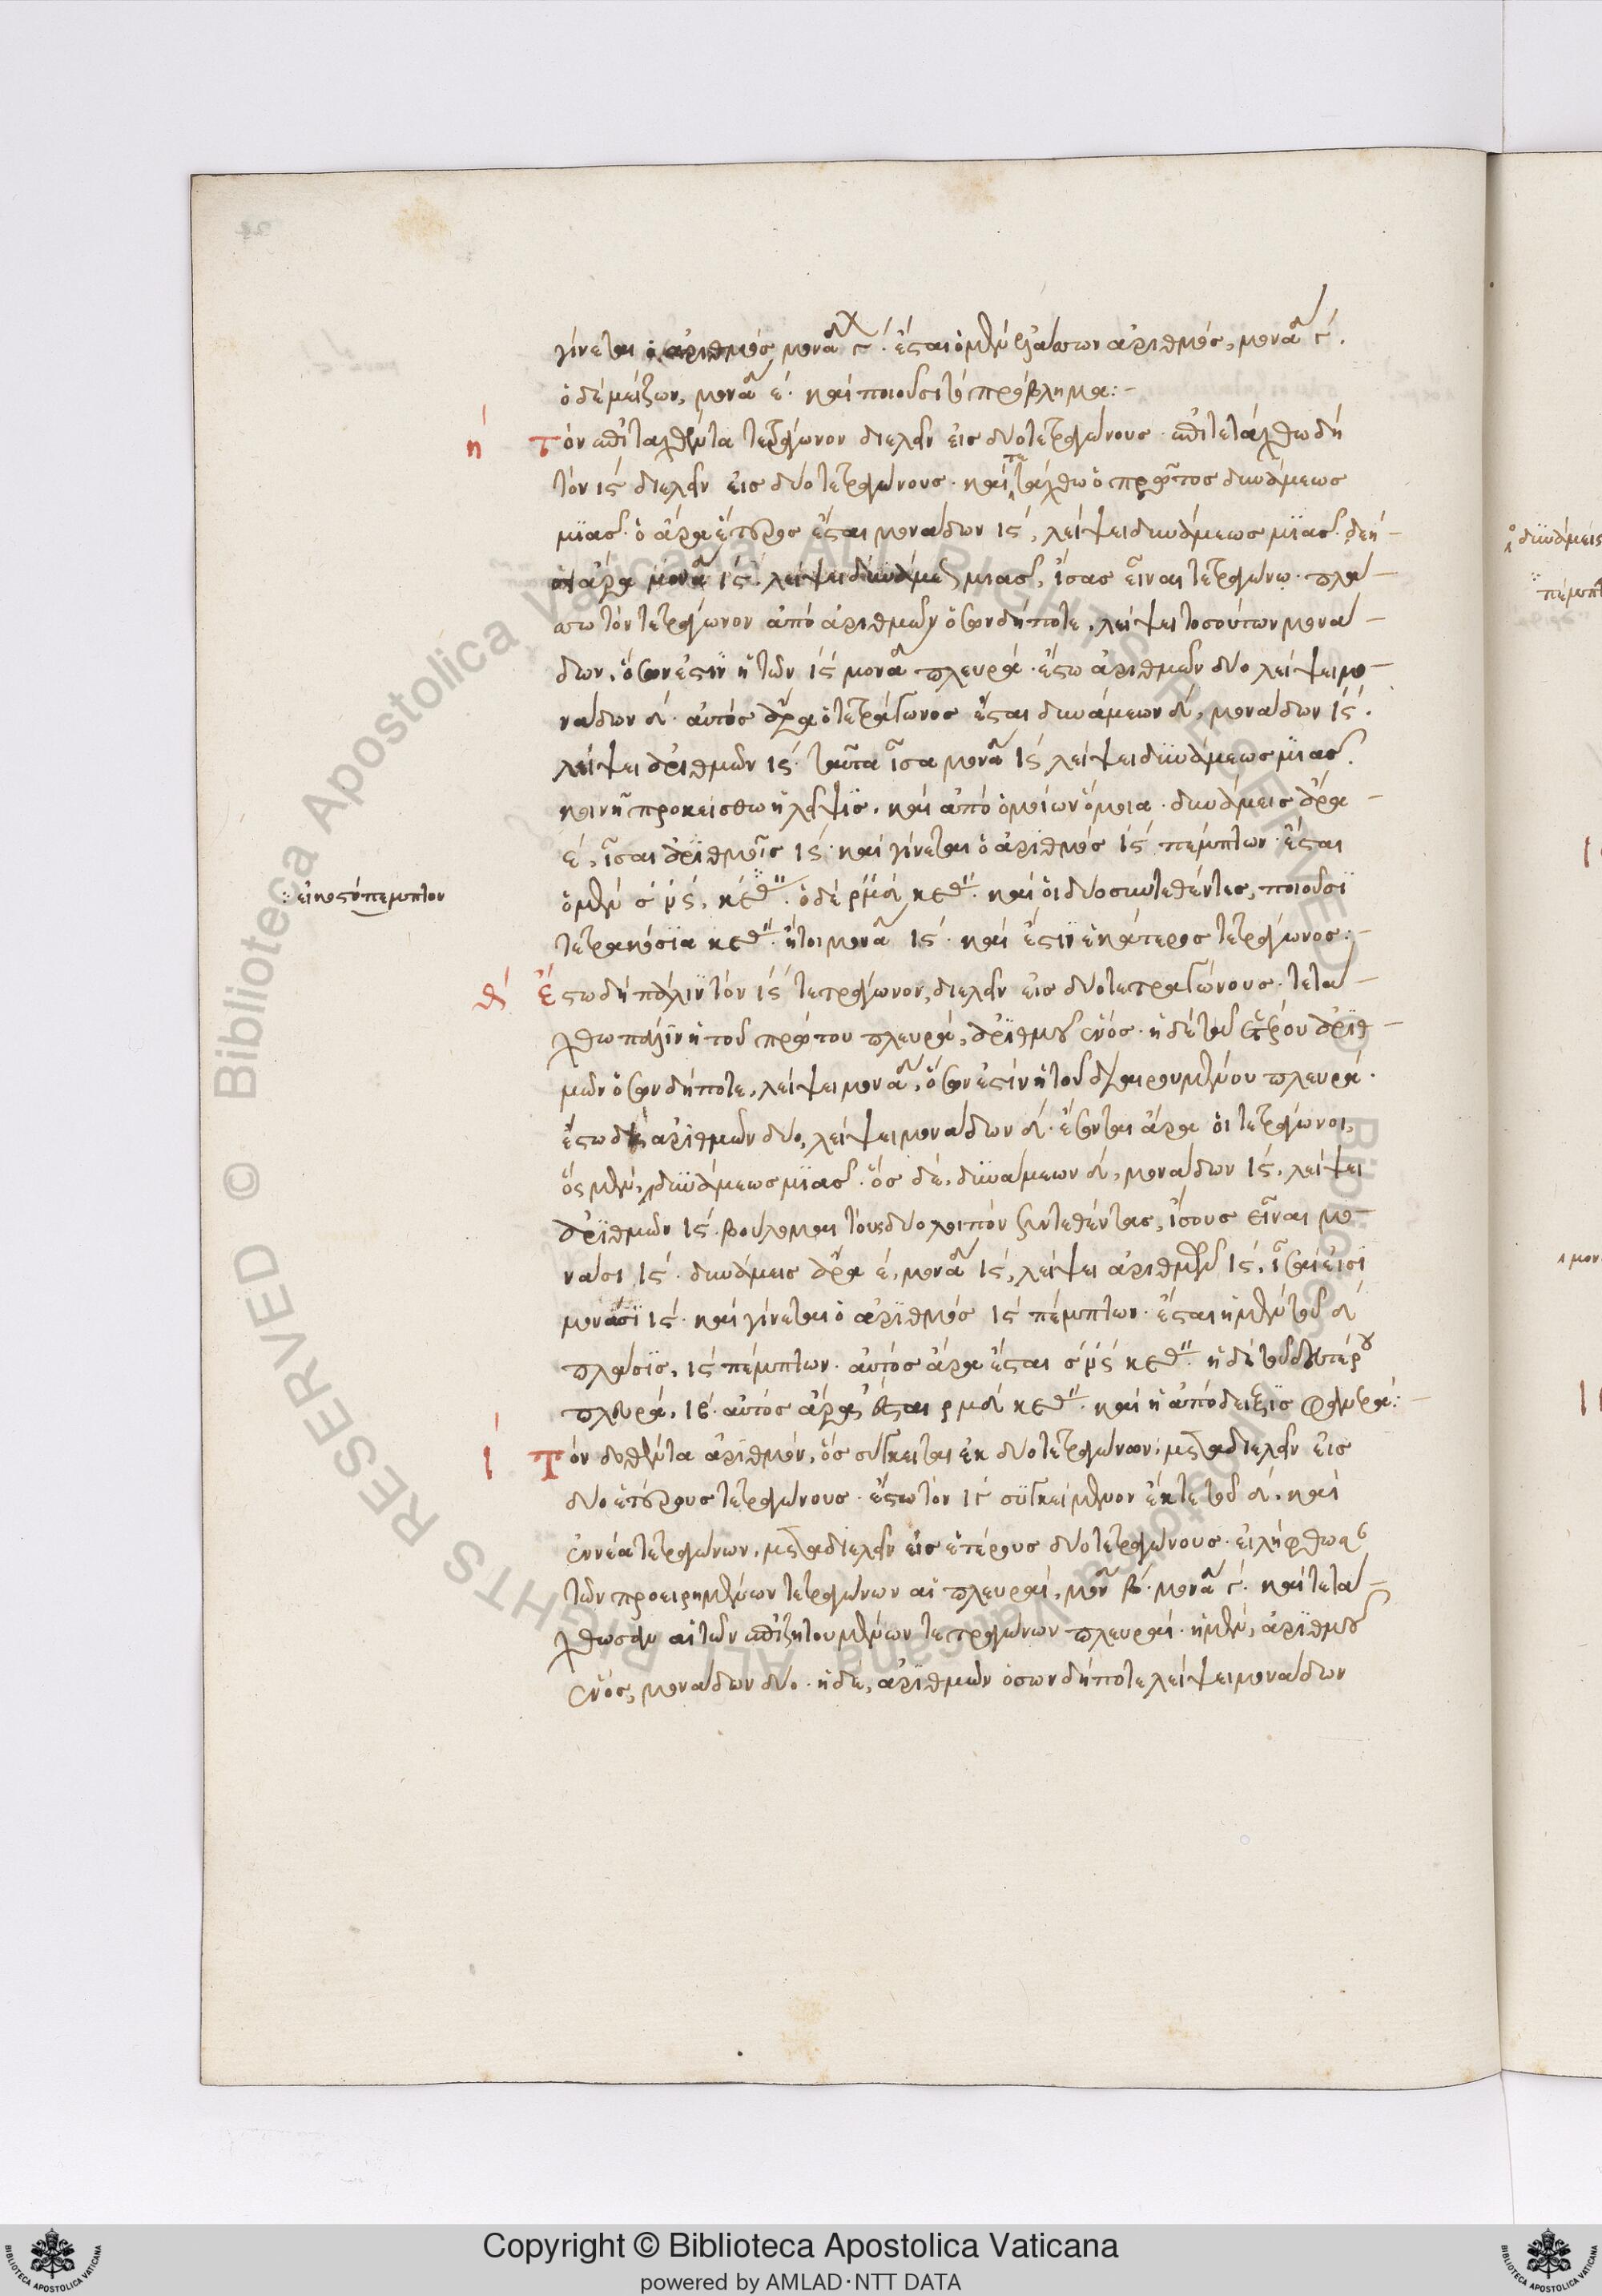 γίνεται ὁ ἀριθμὸς μονάδων γ´. ἔσται ὁ μὲν ἐλάσσων ἀριθμός, μονάδων γ´.
ὁ δὲ μείζων, μονάδων ε´. καὶ ποιοῦσι τὸ πρόβλημα:-
η´ Τὸν ἐπιταχθέντα τετράγωνον διελεῖν εἰς δύο τετραγώνους. ἐπιτετάχθω δὴ
τὸν ις´ διελεῖν εἰς δύο τετραγώνους. καὶ τετάχθω ὁ πρῶτος δυνάμεως
μιᾶς. ὁ ἄρα ἕτερος ἔσται μονάδων ις´, λείψει δυνάμεως μιᾶς. δεή-
σει ἄρα μονάδας ις´ λείψει δυνάμεως μιᾶς, ἴσας εἶναι τετραγώνῳ. πλάσ-
σω τὸν τετράγωνον ἀπὸ ἀριθμῶν ὅσων δήποτε, λείψει τοσούτων μονά-
δων, ὅσων ἐστὶν ἡ τῶν ις´ μονάδων πλευρά. ἔστω ἀριθμῶν δύο λείψει μο-
νάδων δ´. αὐτὸς ἄρα ὁ τετράγωνος ἔσται δυνάμεων δ´, μονάδων ις´.
λείψει ἀριθμῶν ις´. ταῦτα ἴσα μονάσι ις´ λείψει δυνάμεως μιᾶς.
κοινὴ προκείσθω ἡ λεῖψις. καὶ ἀπὸ ὁμοίων ὅμοια. δυνάμεις ἄρα
ε´, ἴσαι ἀριθμοῖς ις´. καὶ γίνεται ὁ ἀριθμὸς ις´ πέμπτων. ἔσται
ὁ μὲν σνς´, κεων. ὁ δὲ ρμδ´ κεων. καὶ οἱ δύο συντεθέντες, ποιοῦσι
:: εἰκοστόπεμπτον
τετρακόσια κεων. ἤτοι μονάδας ις´. καὶ ἔστιν ἑκάτερος τετράγωνος:-
θ´ Ἔστω δὴ πάλιν τὸν ις´ τετράγωνον, διελεῖν εἰς δύο τετραγώνους. τετά-
χθω πάλιν ἡ τοῦ πρώτου πλευρά, ἀριθμοῦ ἑνός. ἡ δὲ τοῦ ἑτέρου ἀριθ-
μῶν ὅσων δήποτε, λείψει μονάδων, ὅσων ἐστὶν ἡ τοῦ διαιρουμένου πλευρά.
ἔστω δὴ ἀριθμῶν δύο, λείψει μονάδων δ´. ἔσονται ἄρα οἱ τετράγωνοι,
ὃς μὲν, δυνάμεως μιᾶς. ὃς δὲ, δυνάμεων δ´, μονάδων ις´, λείψει
ἀριθμῶν ις´. βούλομαι τοὺς δύο λοιπὸν συντεθέντας, ἴσους εἶναι μο-
νάσι ις´. δυνάμεις ἄρα ε´, μονάδες ις´, λείψει ἀριθμῶν ις´, ἴσαι εἰσὶ
μονάσι ις´. καὶ γίνεται ὁ ἀριθμὸς ις´ πέμπτων. ἔσται ἡ μὲν τοῦ α´
πλάσις, ις´ πέμπτων. αὐτὸς ἄρα ἔσται σνς´ κεων. ἡ δὲ τοῦ δευτέρου
πλευρά, ιβ´. αὐτὸς ἄρα ἔσται ρμδ´ κεων. καὶ ἡ ἀπόδειξις φανερά:-
ι´ Τὸν δοθέντα ἀριθμόν, ὃς σύγκειται ἐκ δύο τετραγώνων, μεταδιελεῖν εἰς
δύο ἑτέρους τετραγώνους. ἔστω τὸν ιγ´ συγκείμενον ἔκ τε τοῦ δ´, καὶ
ἐννέα τετραγώνων, μεταδιελεῖν εἰς ἑτέρους δύο τετραγώνους. εἰλήφθωσαν
τῶν προειρημένων τετραγώνων αἱ πλευραί, μονάδων β´. μονάδων γ´. καὶ τετά-
χθωσαν αἱ τῶν ἐπιζητουμένων τετραγώνων πλευραί. ἡ μὲν, ἀριθμοῦ
ἑνός, μονάδων δύο. ἡ δὲ, ἀριθμῶν ὅσων δήποτε λείψει μονάδων
Copyright © Biblioteca Apostolica Vaticana
powered by AMLAD·NTT DATA